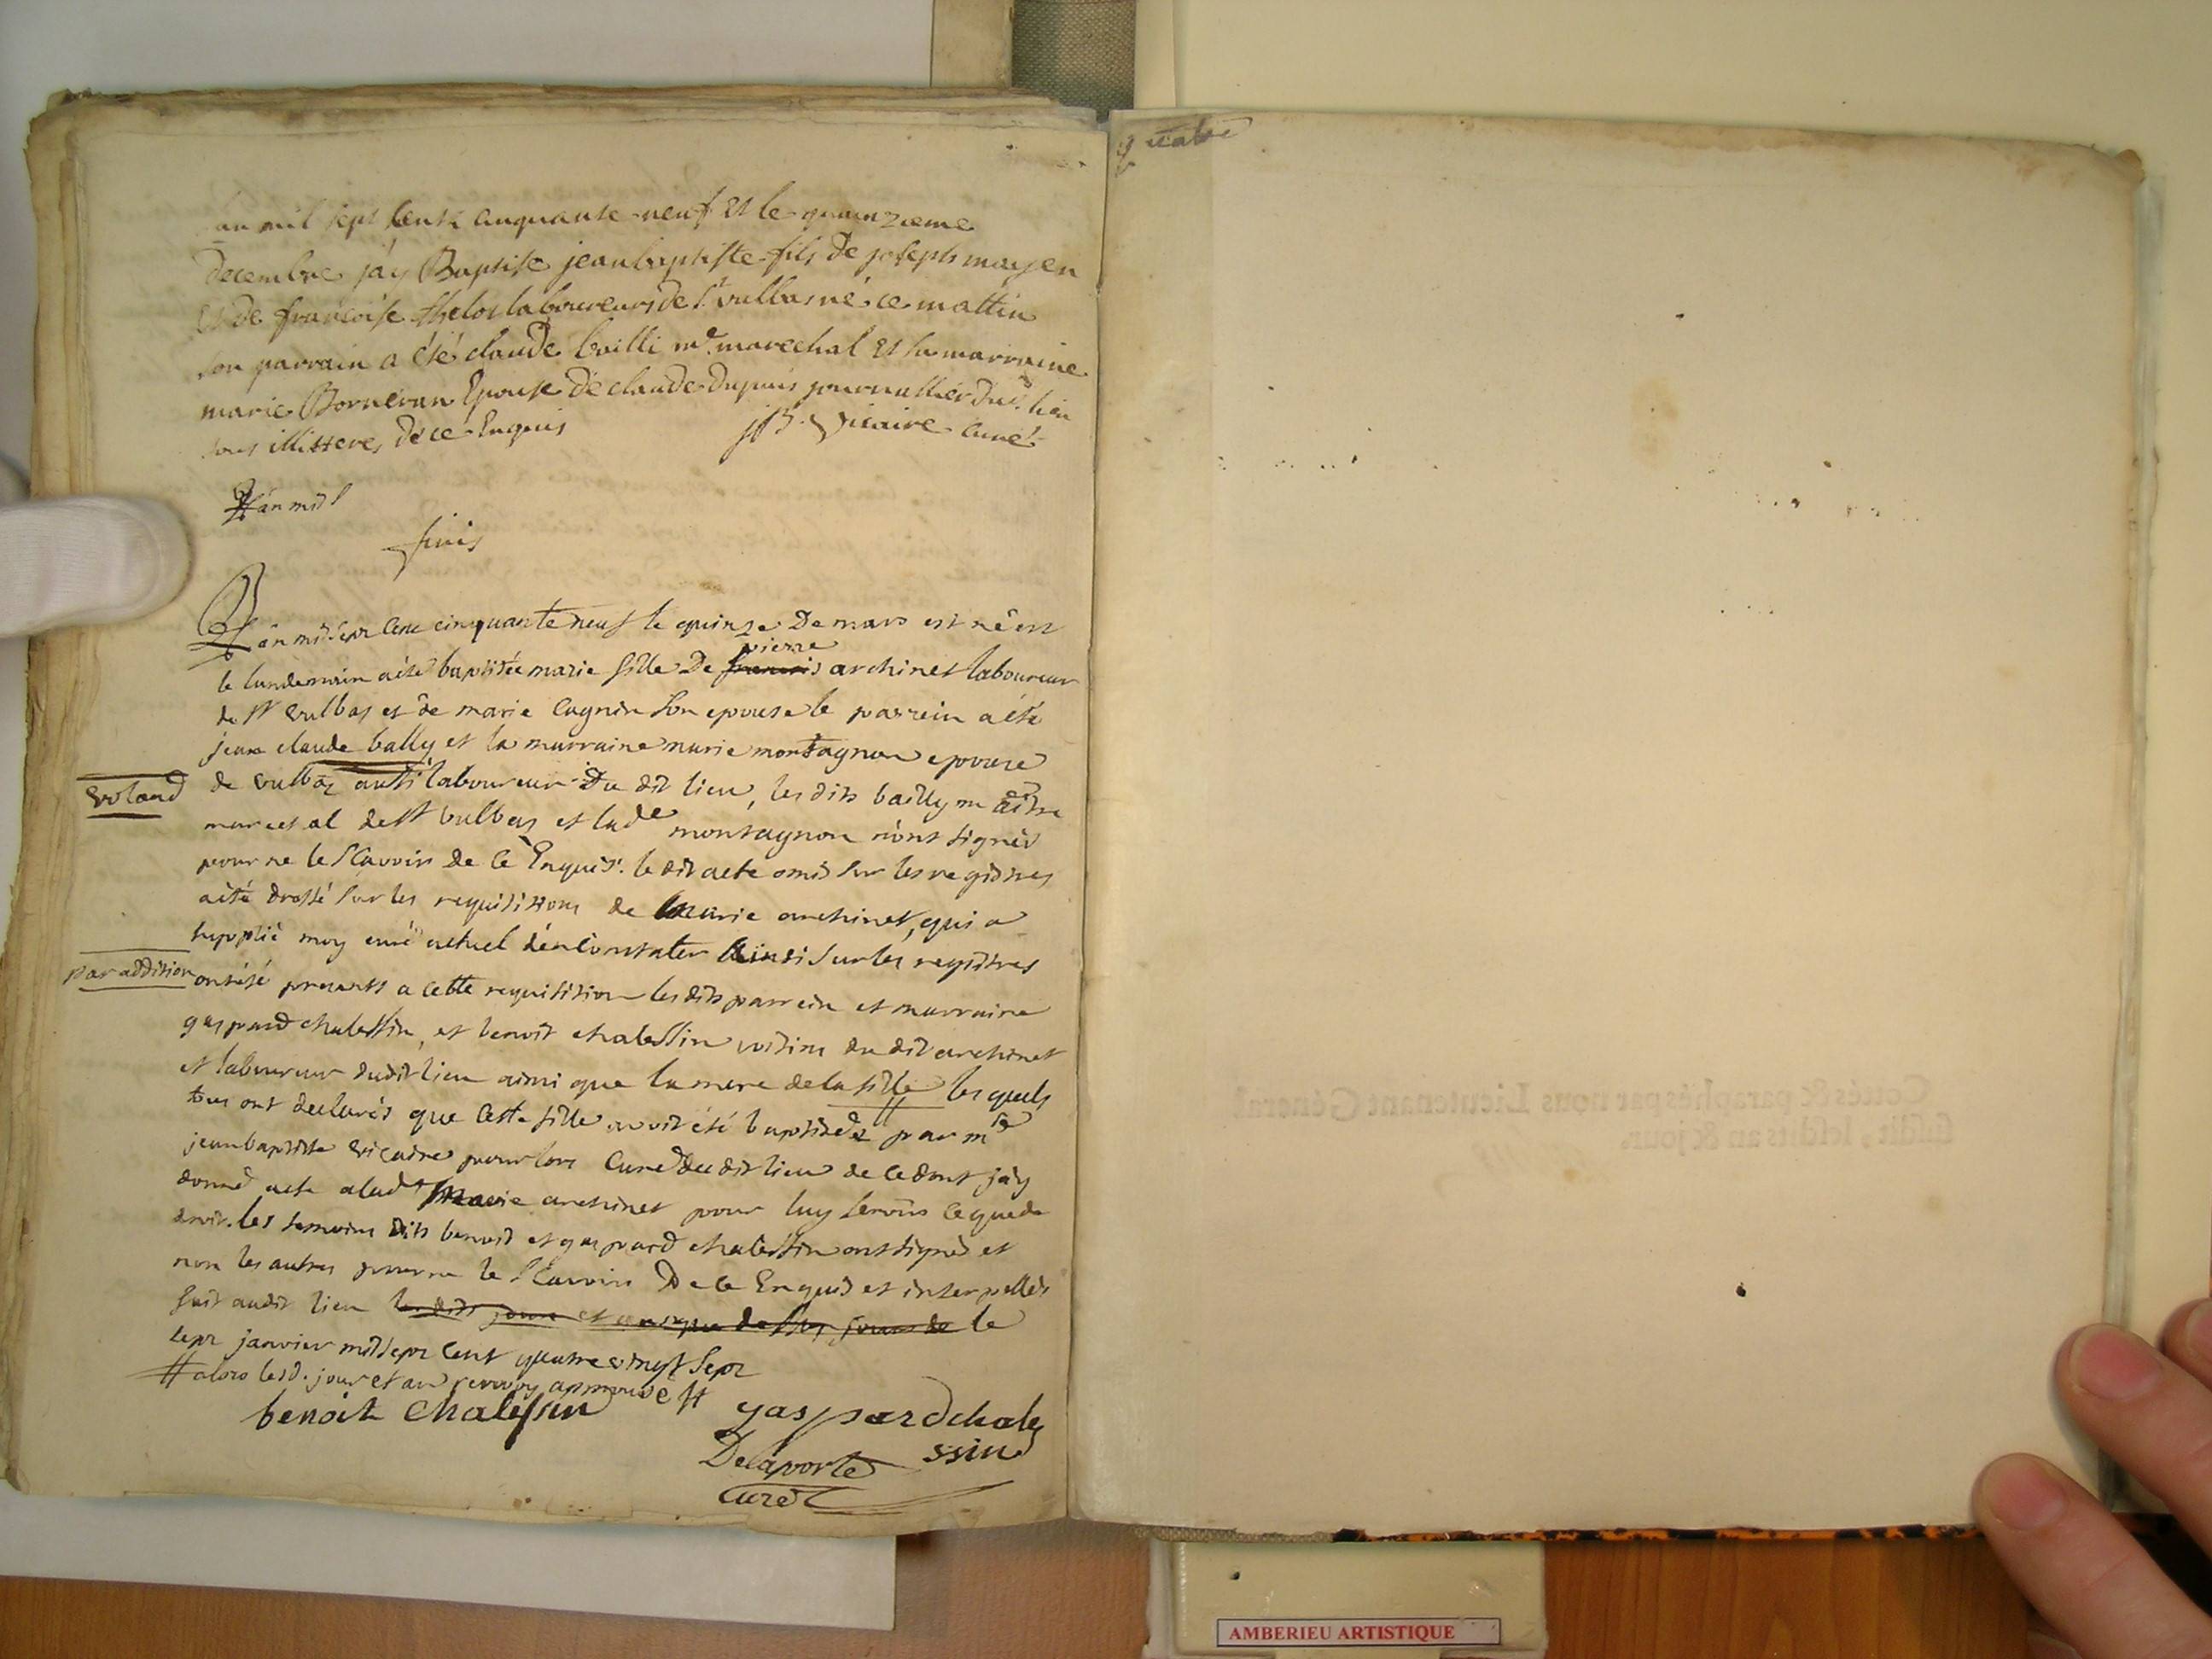 an mil sept cents cinquante neuf et le quinzieme
decembre j'ay Baptisé jeanbaptiste fils de joseph mayen
et de francoise thelos laboureurs de st vulbas né ce mattin
son parrain a été claude bailli me. marechal et sa marraine
marie Borneran Epouse de claude dupuis journallier dud. lieu
tous illitteres de ce Enquis
jB. vicaire curé
L'an mil
finis
L'an mil sept cent cinquante neuf le quinze de mars est né et
pierre
le lendemain a été baptisée marie fille de francois archinet laboureur
de st vulbas et de marie cagnin son epouse le parrein a été
jean claude bally et la marraine marie montagnon epouse
de vulbas aussi laboureur du dit lieu, les dits bailly maître
voland
marechal de st vulbas et lade montagnon n'ont signés
pour ne le sçavoir de ce Enquis. le dit acte omis sur les registres
a été dressé sur les requisitions de marie archinet, qui a
supplié moy curé actuel d'en constater ainsi sur les registres
par addition
ont été presents a cette requisition les dits parrein et marraine
gaspard chalessin, et benoit chalessin voisins du dit archinet
et laboureur dudit lieu ainsi que la mere de la fille les quels
tous ont declarés que cette fille avoit été baptisée # par mre
jeanbaptiste vicaire pour lors curé du dit lieu de ce dont j'ay
donné acte a lad marie archinet pour luy servir ce que de
droit. les temoins dits benoit et gaspard chalessin ont signés et
non les autres pour ne le sçavoir de ce Enquis et interpellés
fait audit lieu les dits jour et an le
sept janvier mil sept cent quatre vingt sept
# alors lesd. jour et an renvoy approuvé #
benoit chalessin
gaspard chale
ssin
Delaporte
curé
quatre
Cottés & paraphés par nous Lieutenant Général
susdit, lesdits an & jour.
AMBERIEU ARTISTIQUE